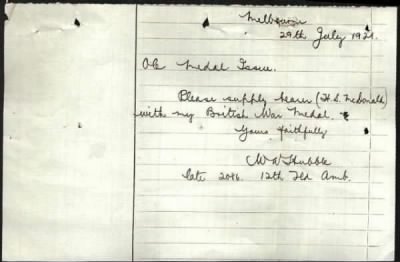 Melbourne
29th July 1921.
O/c Medal Issue.
Please supply bearer (H.S. McDonald)
with my British War Medal.
Yours faithfully
Hubble
late 2046. 12th Fld Amb.